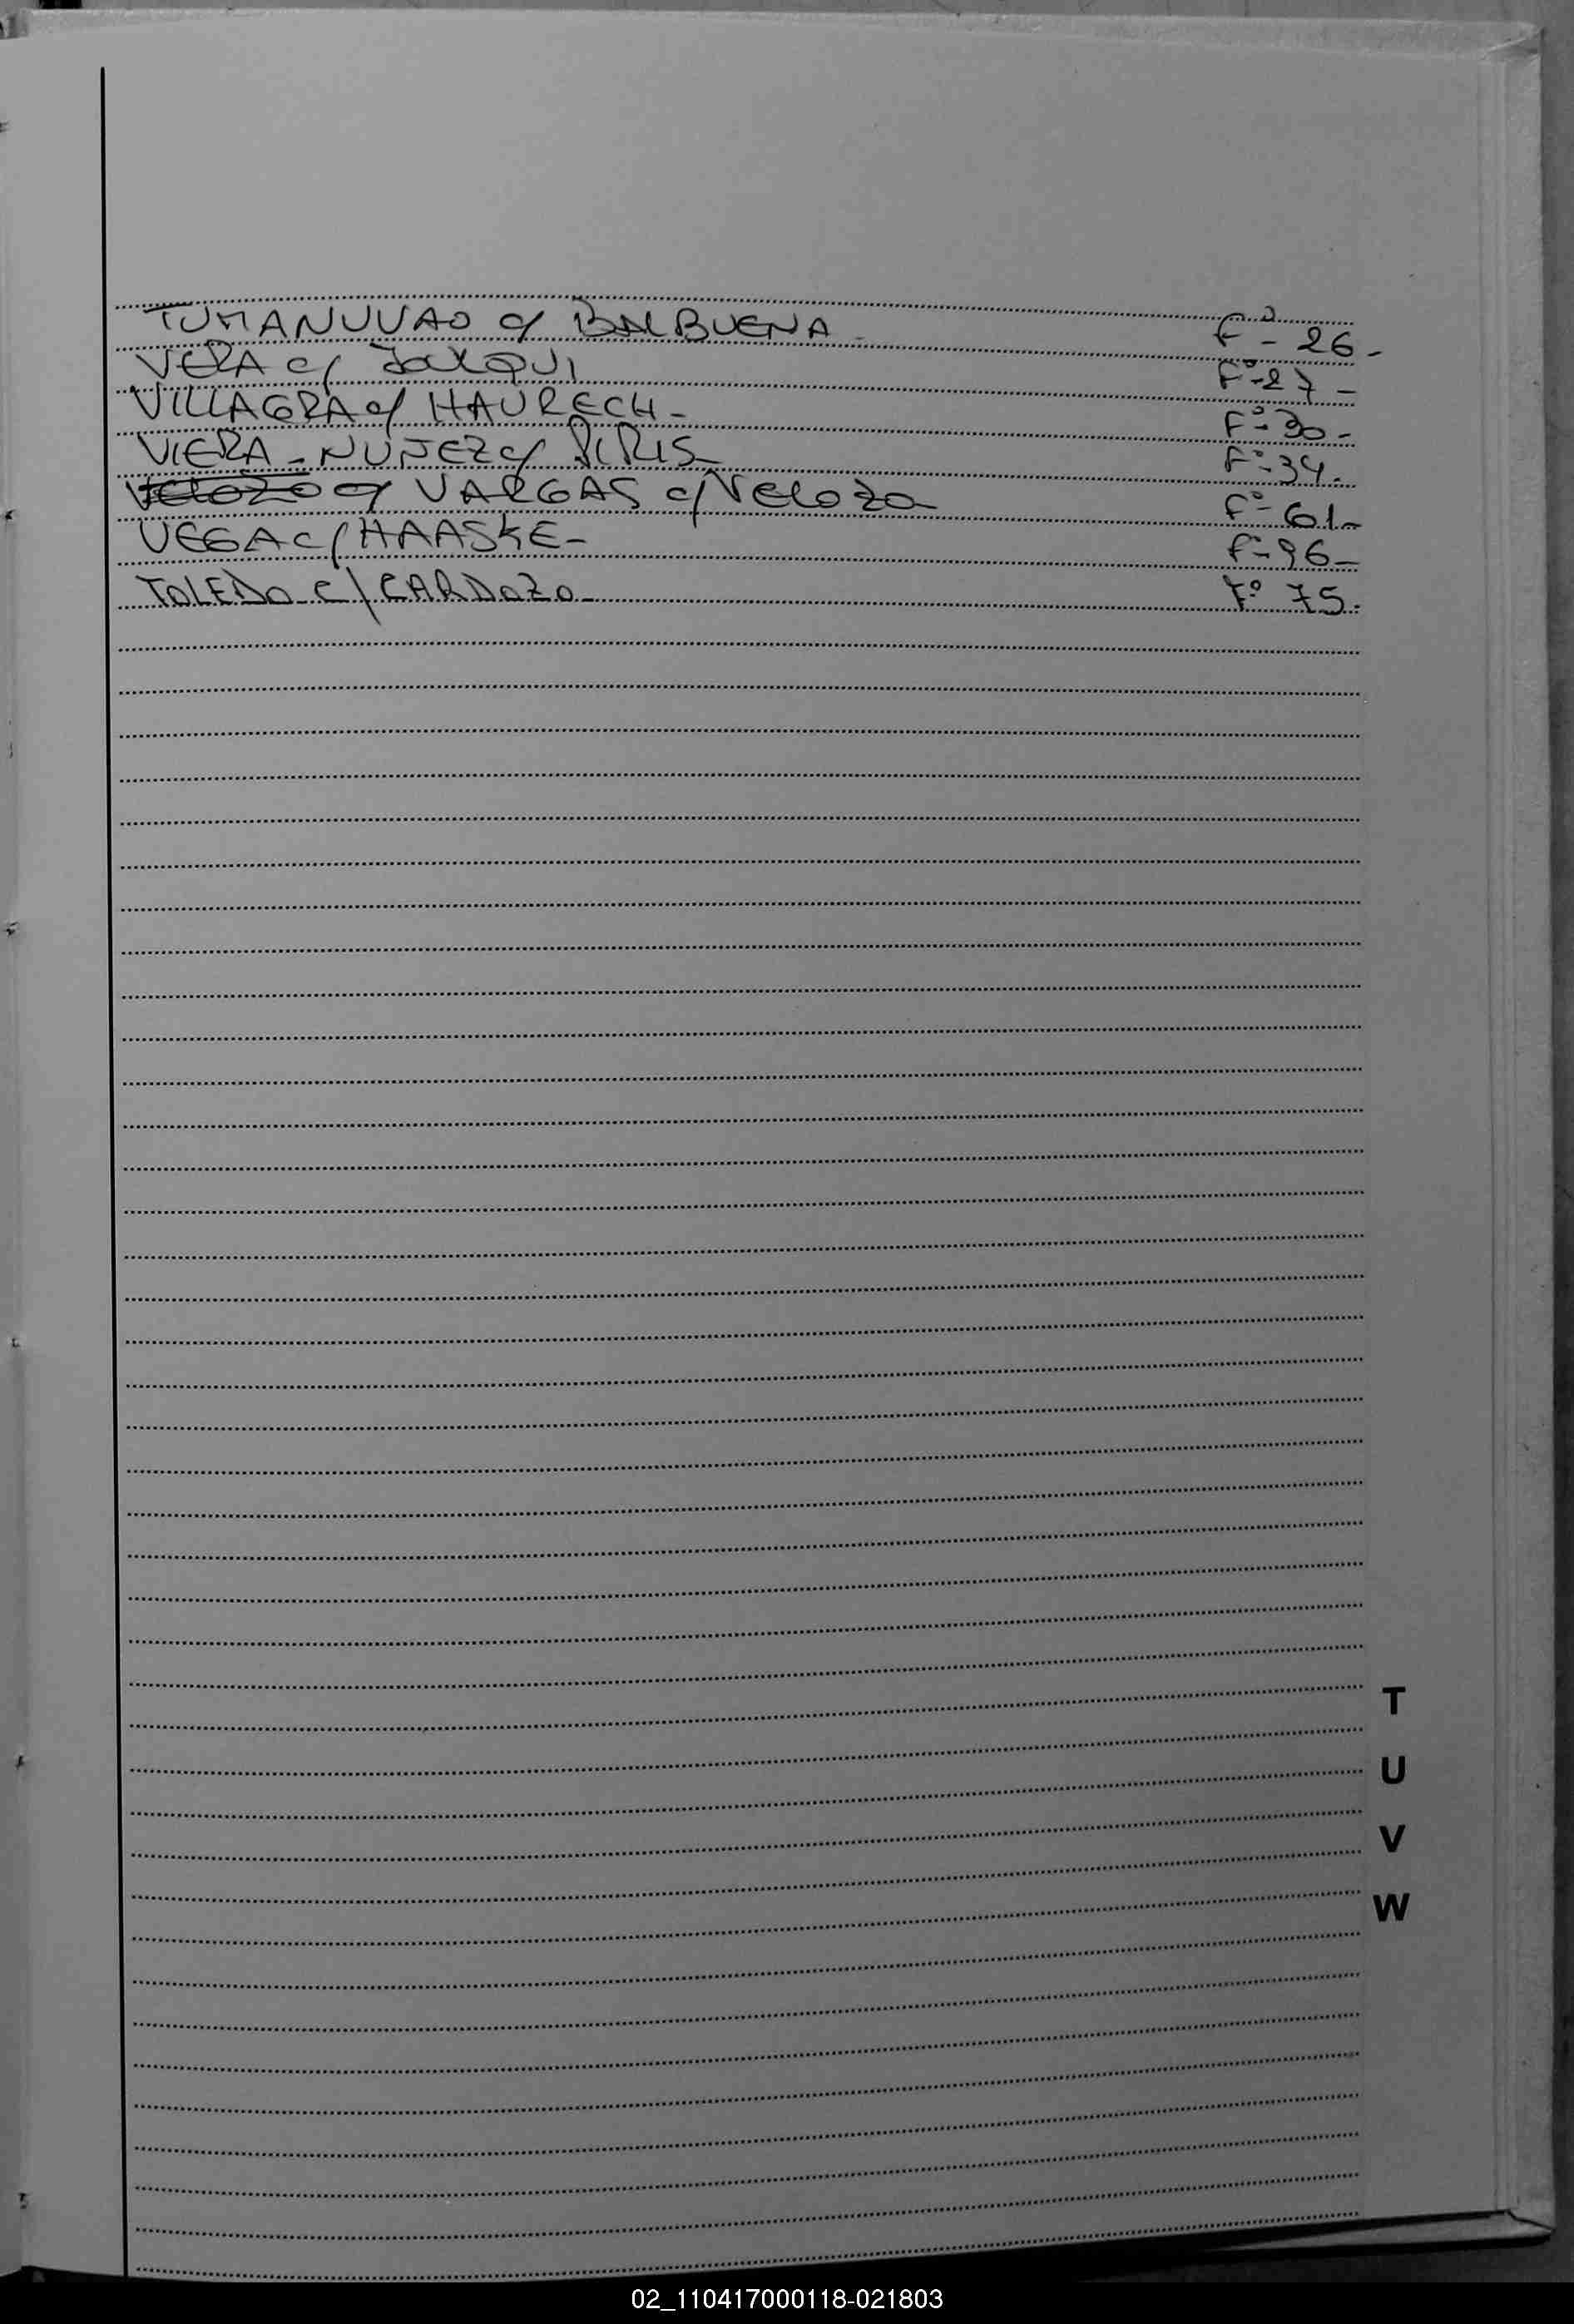 TUMANUVAO c/ BALBUENA - F° - 26 -
VERA c/ F° - 27 -
VILLAGRA c/ HAURECH - F° - 30 -
VIERA - NUÑEZ c/ PIRIS - F° - 34.
VELOZO c/ VARGAS c/ VELOZO F° - 61 -
VEGA c/ HAASKE - F° - 96 -
TOLEDO c/ CARDOZO - F° 75.
T
U
V
W
02_110417000118-021803